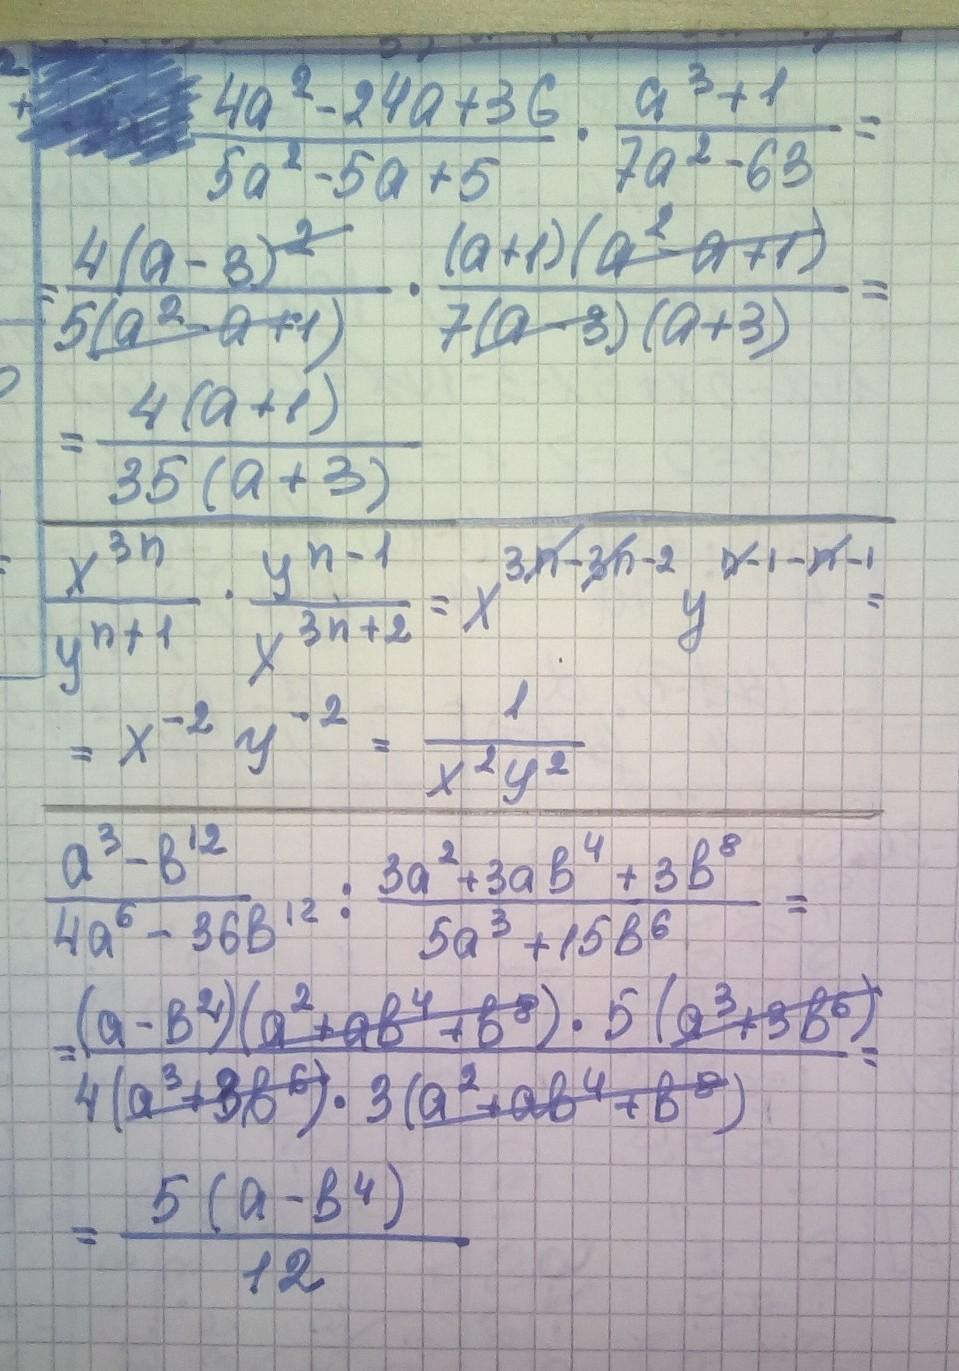 (4a²-24a+36)/(5a²-5a+5) · (a³+1)/(7a²-63) =
= 4(a-3)²/5(a²-a+1) · (a+1)(a²-a+1)/7(a-3)(a+3) =
= 4(a+1)/35(a+3)
x³ⁿ/yⁿ⁺¹ · yⁿ⁻¹/x³ⁿ⁺² = x³ⁿ⁻³ⁿ⁻² yⁿ⁻¹⁻ⁿ⁻¹ =
= x⁻² y⁻² = 1/x²y²
(a³-b¹²)/(4a⁶-36b¹²) : (3a²+3ab⁴+3b⁸)/(5a³+15b⁶) =
= (a-b⁴)(a²+ab⁴+b⁸)·5(a³+3b⁶)/4(a³+3b⁶)·3(a²+ab⁴+b⁸) =
= 5(a-b⁴)/12